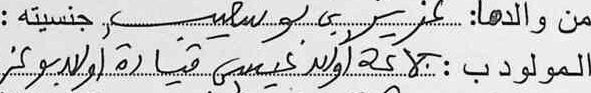 من والدها: عزيربي بوسهيب جنسيته :
المولود ب : جماعة أولاد عيسى قيادة أولاد بوعز